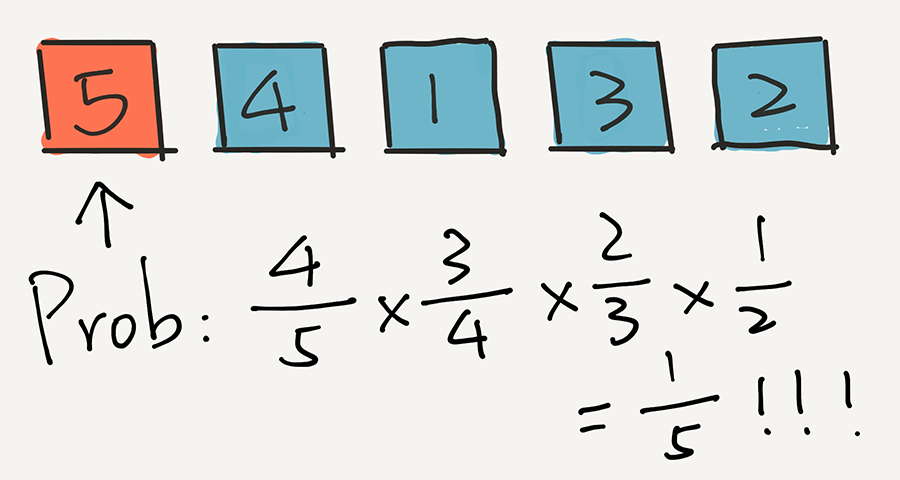 5 4 1 3 2
↑
Prob: 4/5 × 3/4 × 2/3 × 1/2
= 1/5 !!!